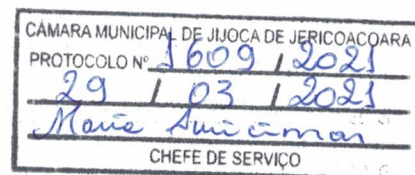 CÂMARA MUNICIPAL DE JIJOCA DE JERICOACOARA
PROTOCOLO Nº 1609 / 2021
29 / 03 / 2021
Maria
CHEFE DE SERVIÇO